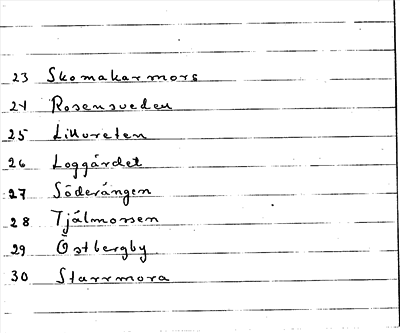 23 Skomakarmors
24 Rosensveden
25 Lillvreten
26 Loggårdet
27 Söderängen
28 Tjälmossen
29 Östbergby
30 Starrmora